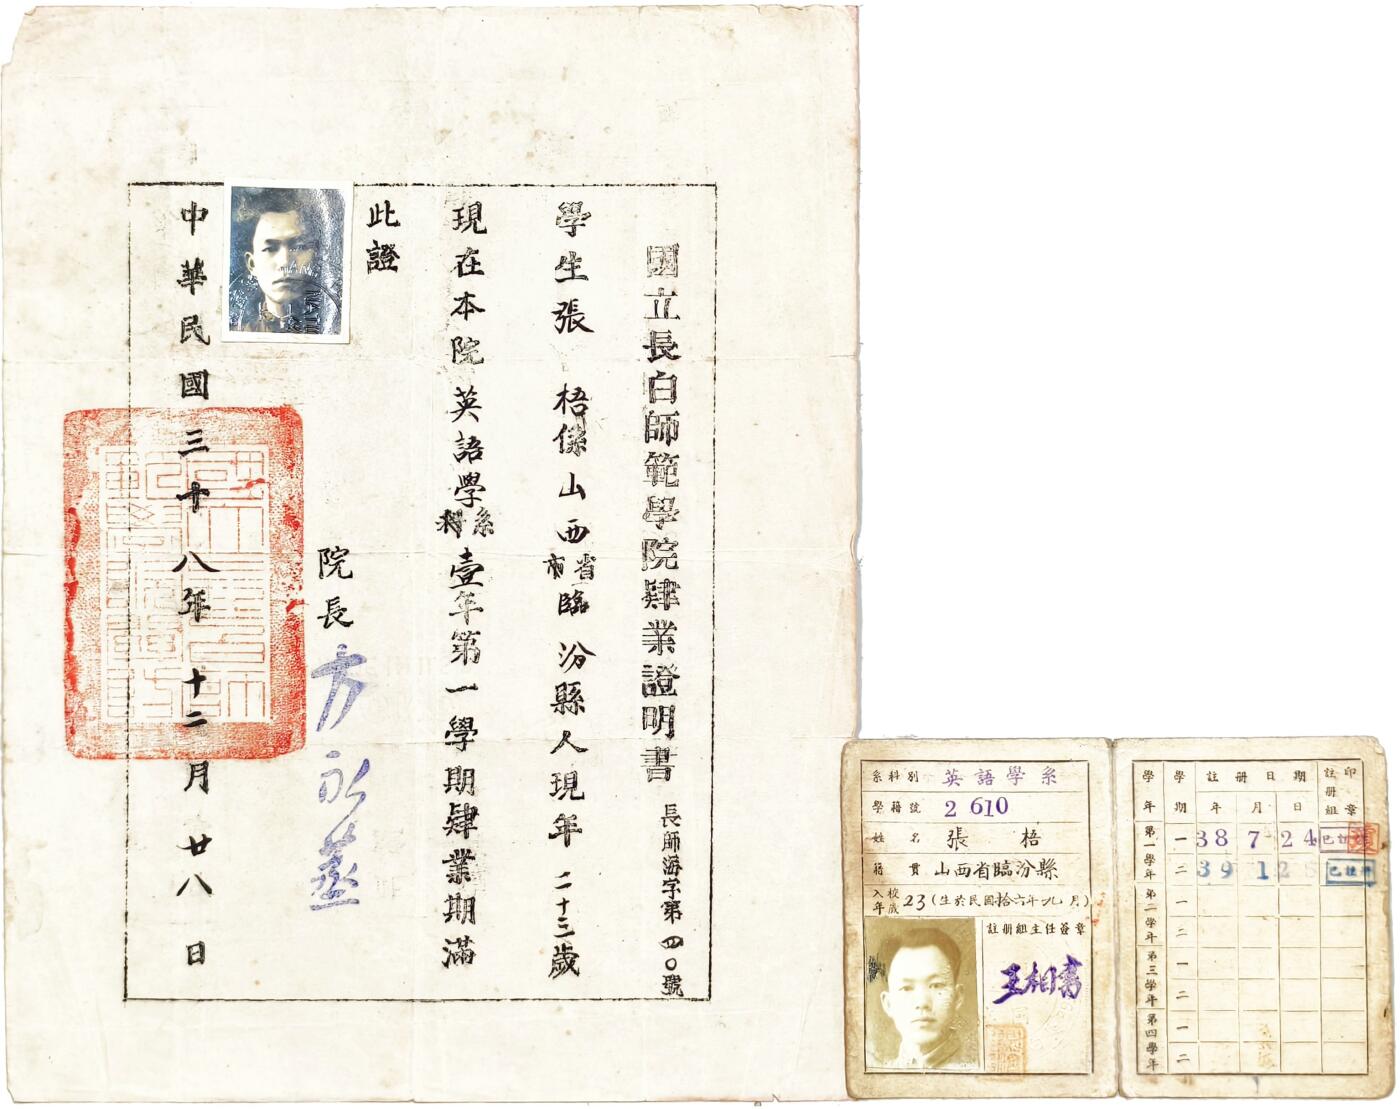 國立長白師範學院肄業證明書
長師海字第四〇號
學生張梧係山西省市臨汾縣人現年二十三歲
現在本院英語學系科壹年第一學期肄業期滿
此證
院長方永蒸
中華民國三十八年十二月廿八日
系科別 英語學系
學籍號 2610
姓名 張梧
籍貫 山西省臨汾縣
入校年歲 23(生於民國拾六年九月)
註册組主任簽章
王相書
學年 學期 註册日期 註册組印章
年 月 日
第一學年 一 38 7 24
二 39 1 2
第二學年 一
二
第三學年 一
二
第四學年 一
二